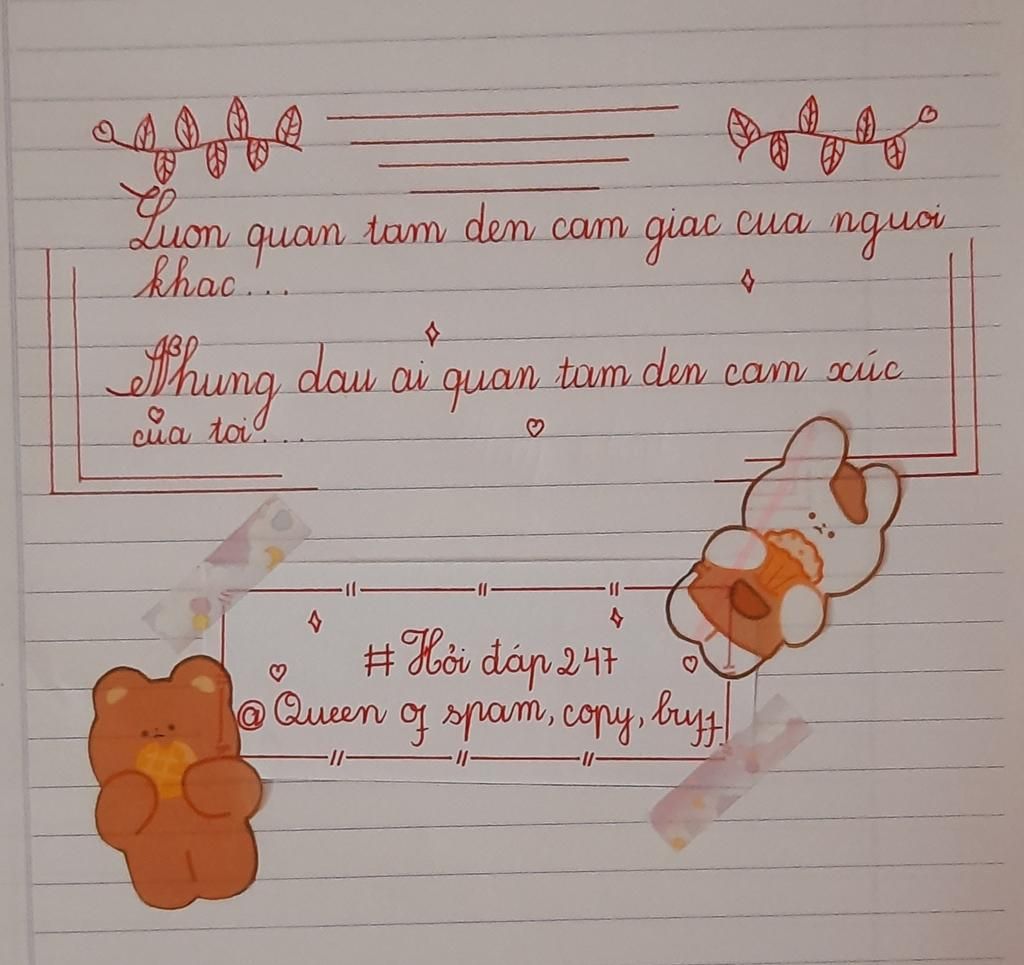 Luon quan tam den cam giac cua nguoi
khac...
Nhung dau ai quan tam den cam xúc
của toi...
# Hỏi đáp 247
@ Queen of spam, copy, buff